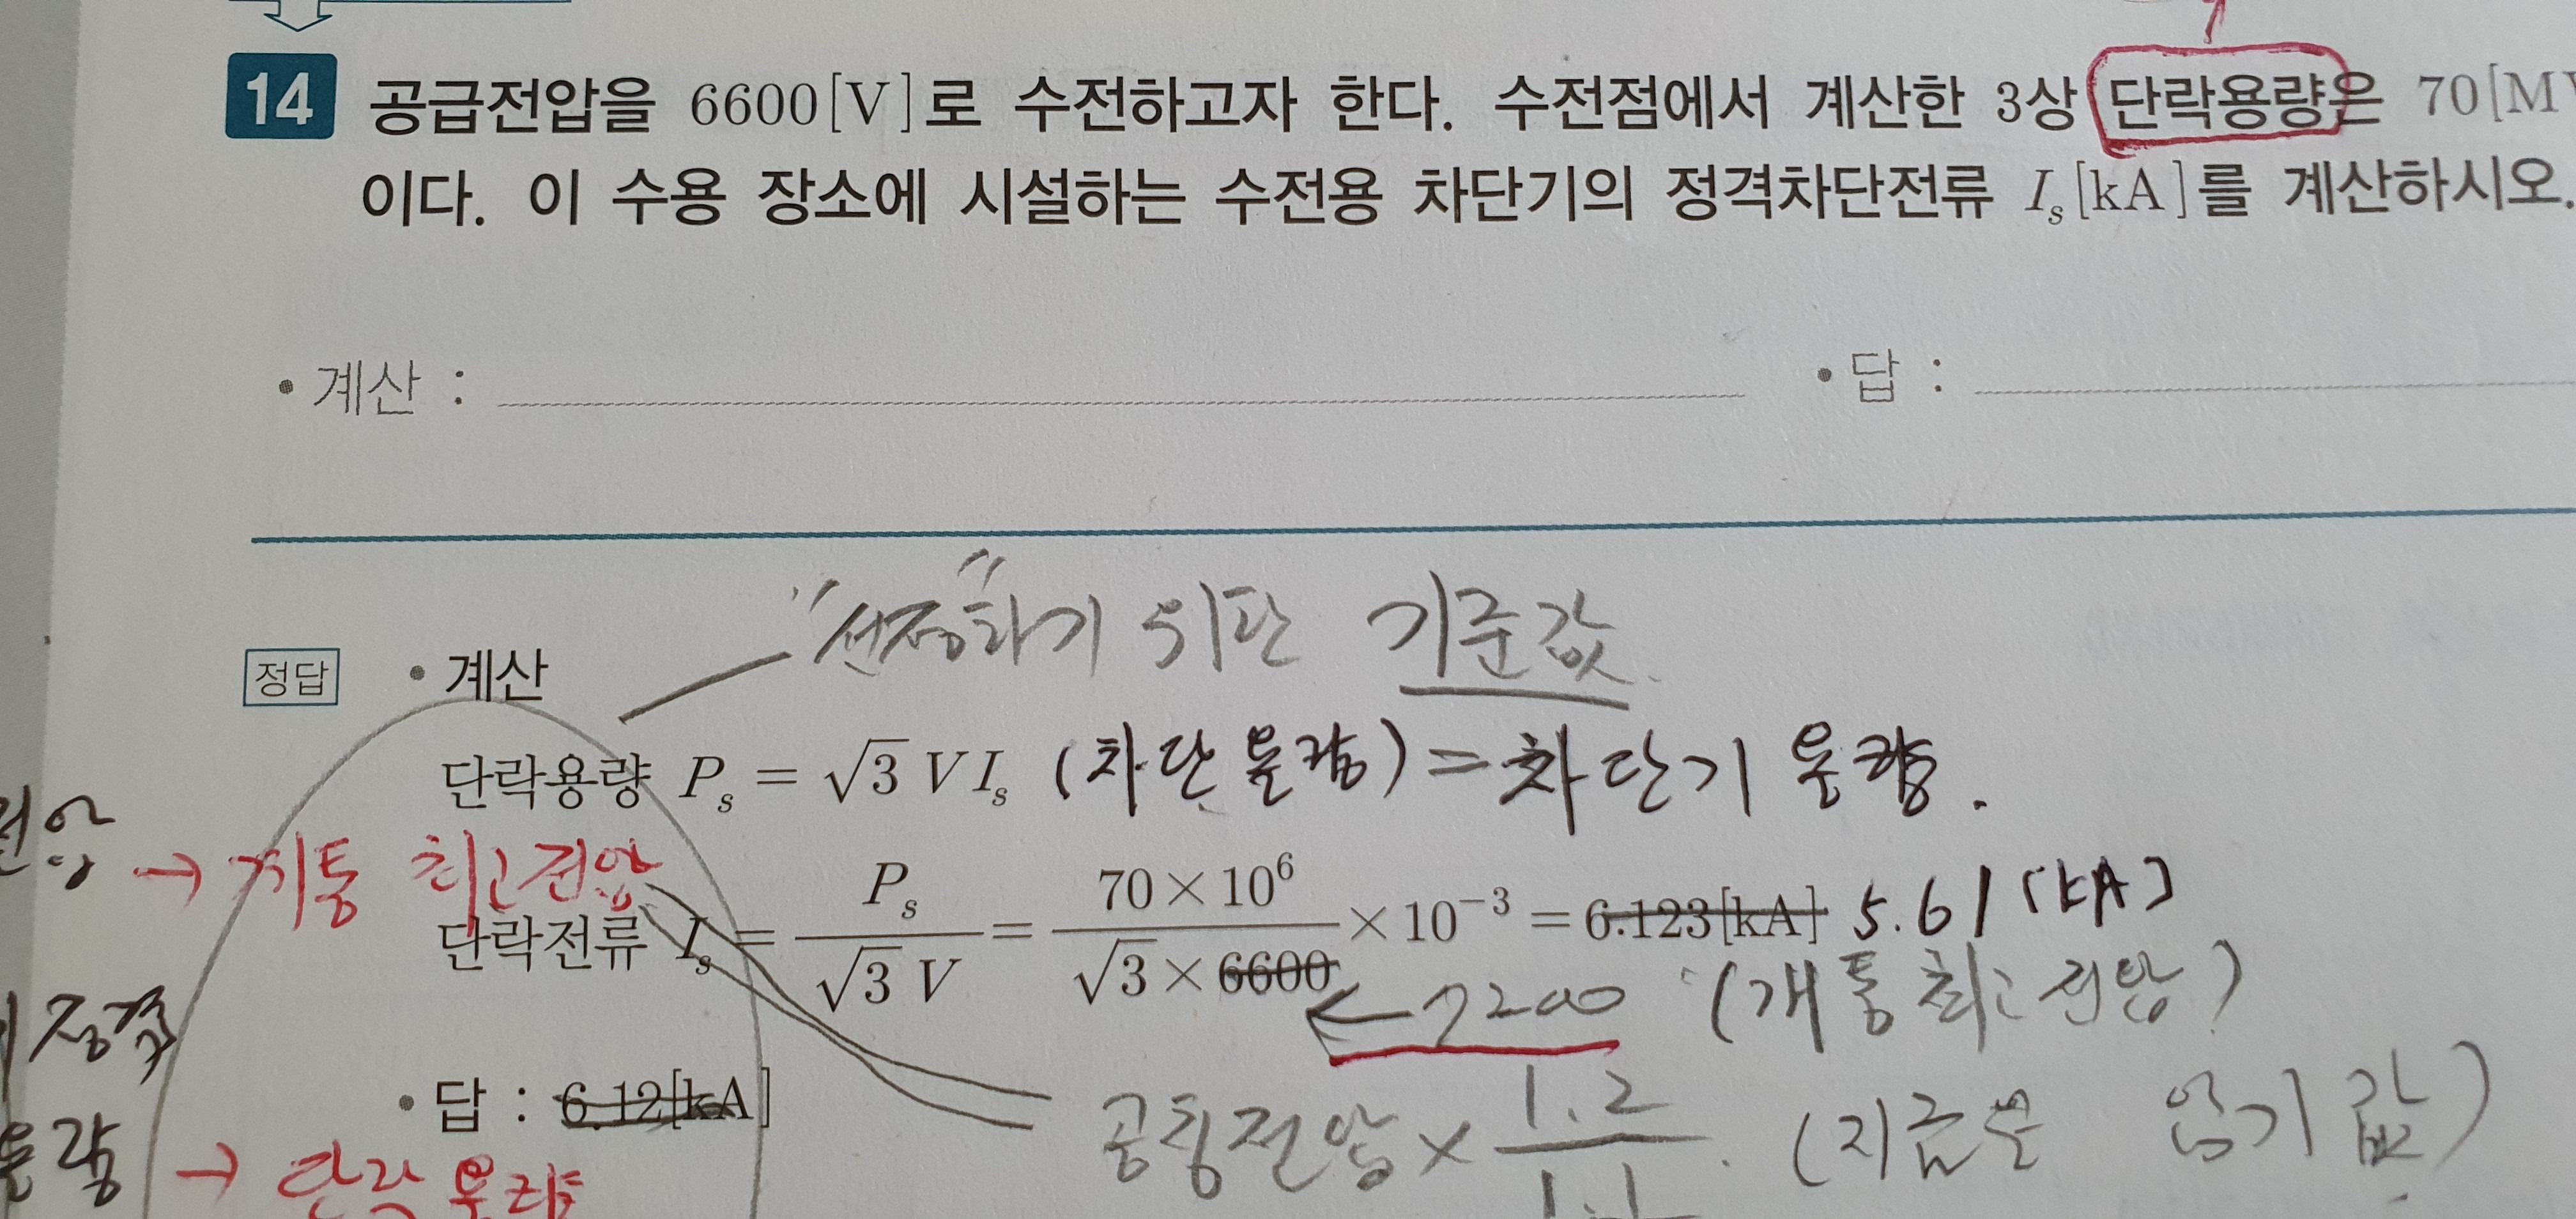 14 공급전압을 6600[V]로 수전하고자 한다. 수전점에서 계산한 3상 단락용량은 70[MV
이다. 이 수용 장소에 시설하는 수전용 차단기의 정격차단전류 I_s[kA]를 계산하시오.
• 계산 :
• 답 :
"선정"하기 위한 기준값.
정답 • 계산
단락용량 P_s = √3 V I_s (차단용량) = 차단기 용량.
전압 → 계통 최고전압
단락전류 I_s = P_s / √3 V = 70×10⁶ / √3 × 6600 × 10⁻³ = 6.123[kA] 5.61[kA]
← 7200 (계통최고전압)
정격
• 답 : 6.12[kA]
공칭전압 × 1.2 / 1.1 (지금은 암기값)
용량 → 단락용량